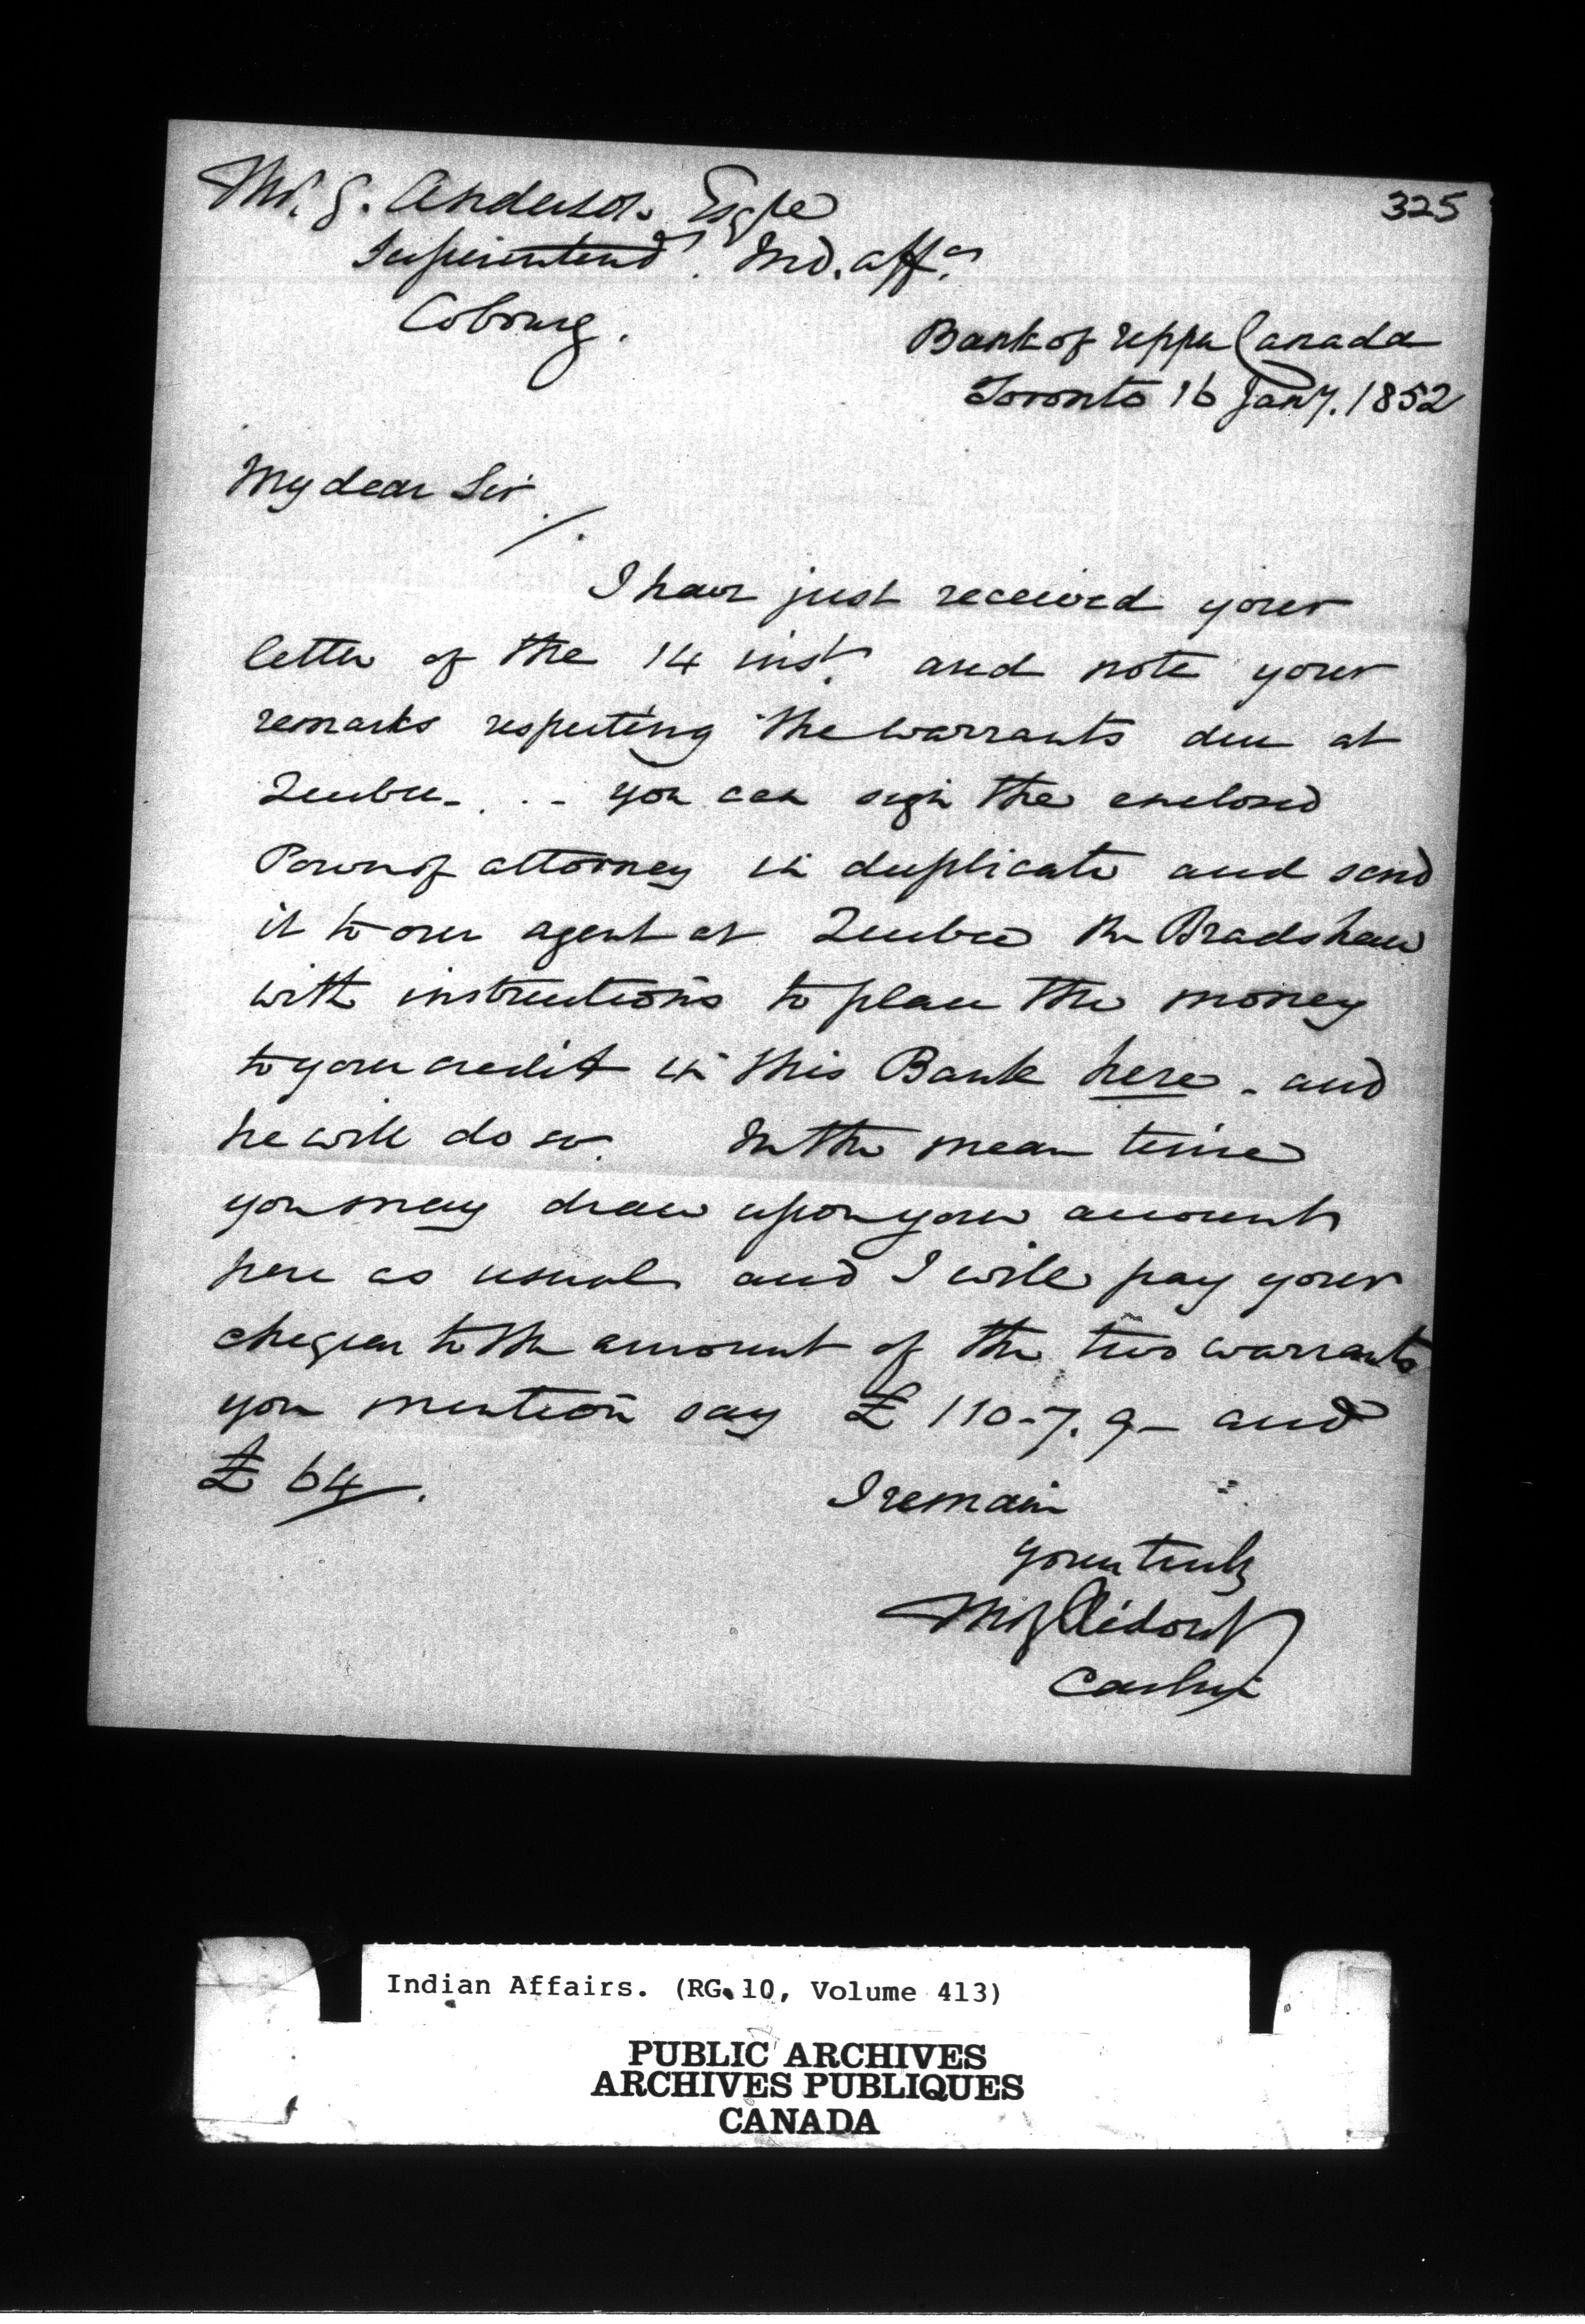 325
T. G. Anderson Esqre
Superintendt. Ind. affs.
Cobourg.
Bank of Upper Canada
Toronto 16 Jany. 1852
My dear Sir
I have just received your
letter of the 14 inst. and note your
remarks respecting the warrants due at
Quebec - . . - you can sign the enclosed
Power of attorney in duplicate and send
it to our agent at Quebec Mr Bradshaw
with instructions to place the money
to your credit in this Bank here - and
he will do so. In the mean time
you may draw upon your account
here as usual and I will pay your
cheques to the amount of the two warrants
you mention say £ 110-7. 9 - and
£ 64/.
I remain
yours truly
Ridout
Cashier
Indian Affairs. (RG.10, Volume 413)
PUBLIC ARCHIVES
ARCHIVES PUBLIQUES
CANADA